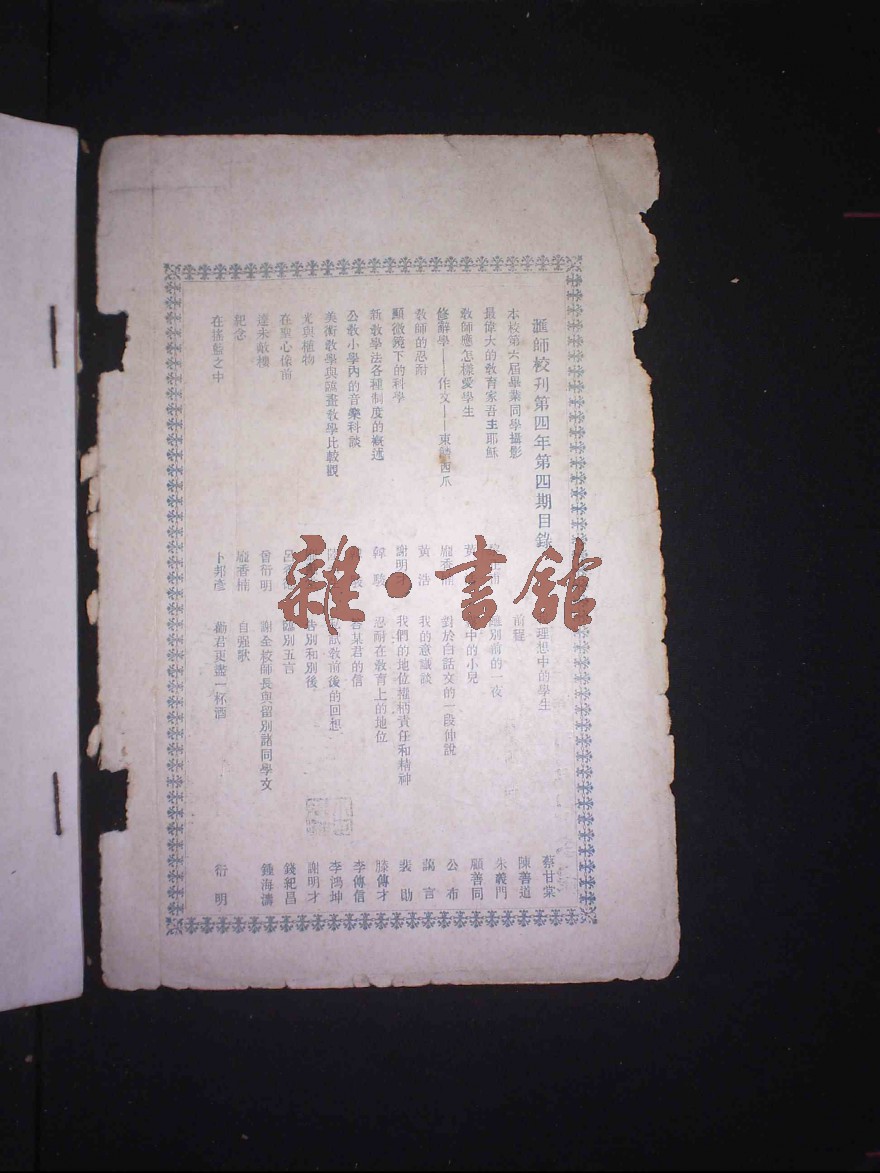 滙師校刋第四年第四期目錄
本校第六屆畢業同學攝影
最偉大的敎育家吾主耶穌
敎師應怎樣愛學生
修辭學——作文——東鱗西爪
敎師的忍耐
顯微鏡下的科學
新敎學法各種制度的槪述
公敎小學內的音樂科談
美術敎學與圖畫敎學比較觀
光與植物
在聖心像前
達未敵樓
紀念
在搖籃之中
黃
龐香楠
黃浩
謝明才
韓駿
曾衍明
龐香楠
卜邦彥
理想中的學生
前程
離別前的一夜
中的小兒
對於白話文的一段伸說
我的意識談
我們的地位權柄責任和精神
忍耐在敎育上的地位
某君的信
試敎前後的回想
告別和別後
臨別五言
謝全校師長與留別諸同學文
自强歌
勸君更盡一杯酒
蔡甘棠
陳善道
朱羲門
顧善同
公布
謁言
裴勛
滕傳才
李傳信
李鴻坤
謝明才
錢紀昌
鍾海濤
衍明
雜·書館